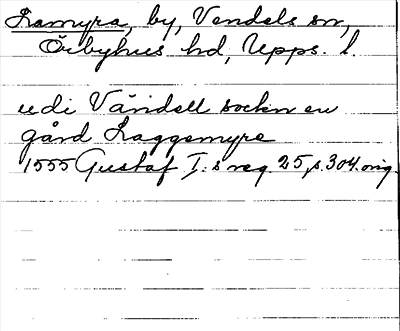 Lamyra, by, Vendels sn,
Örbyhus hd, Upps. l.
udi Vändell sockn en
gård Laggemyre
1555 Gustaf I:s reg. 25, s. 304. orig.